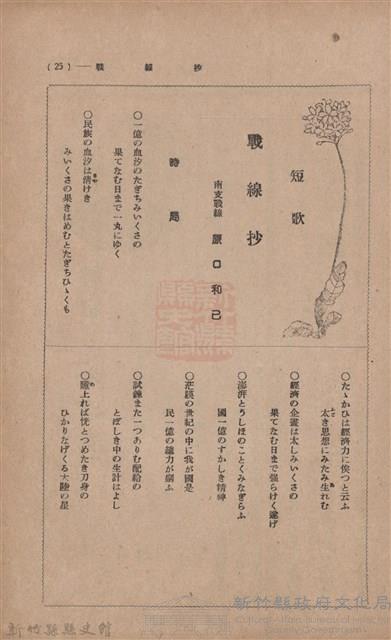 (25)——戰線抄
短歌
戰線抄
南支戰線 原口和己
時局
○一億の血汐のたぎちみいくさの
果てなむ日まで一丸にゆく
○民族の血汐は淸けき
みいくさの果きはめむとたぎちひゞくも
○たゝかひは經濟力に俟つと云ふ
太き思想にみたみ生れむ
○經濟の企畫は太しみいくさの
果てなむ日まで强らけく遂げ
○澎湃とうしほのごとくみなぎらふ
國一億のすがしき精神
○茫漠の世紀の中に我が國是
民一億の總力が副ふ
○試鍊また一つありむ配給の
とぼしき中の生計はよし
○瞻上れば恍とつめたき刀身の
ひかりなげくる大陸の星
新竹縣政府文化局
Cultural Affairs Bureau of Hsinchu County Government
新竹縣縣史館